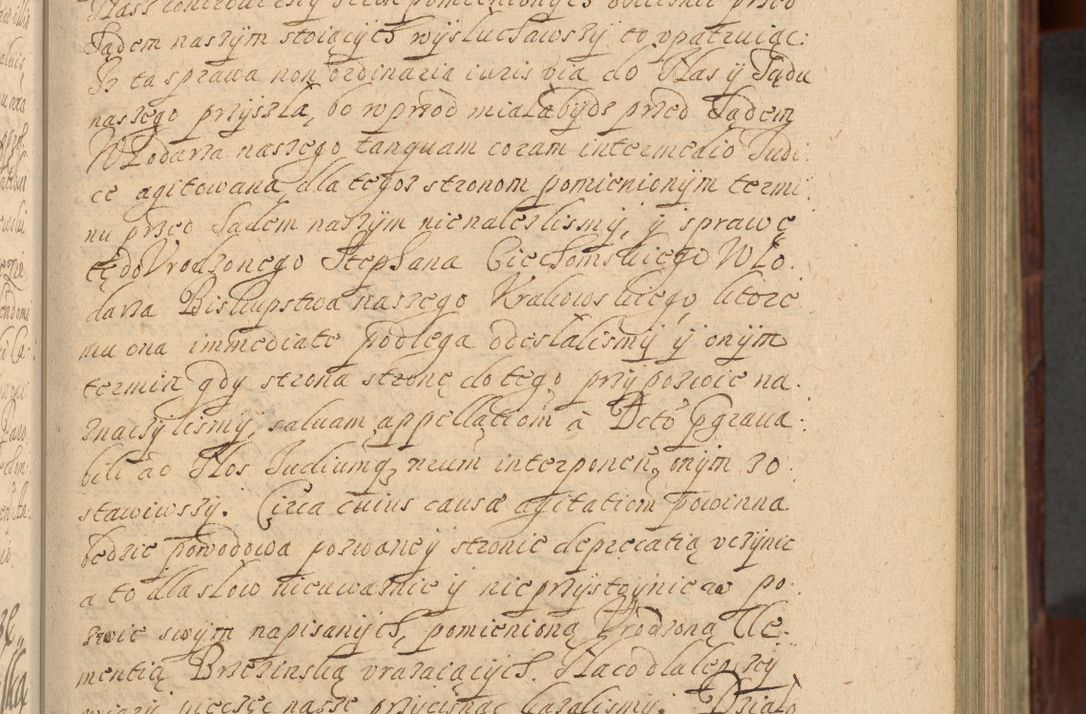 Nasz controversiy stron pomienionych obecnie przed
Sądem naszym stoiących wysłuchawszy to upatruiąc
Iż ta sprawa non ordinaria iuris via do Nas y Sądu
naszego przyszła, bo wprzod miała bydz przed Sądem
Włodarza naszego tanquam coram intermedio Judi
ce agitowana, dla tegoż stronom pomienionym termi
nu przed Sądem naszym nienaleźlismy, y sprawę
tę do Urodzonego Stephana Ciechomskiego Wło
darza Biskupstwa naszego Krakowskiego, ktore
mu ona immediate podlega odesłalismy y onym
termin gdy strona stronę do tego przypozwie na
znaczylismy, saluam appellationem à Dcto ꝑgraua
bili ad Nos Judiumq, nrum interponen, onym zo
stawiwszy. Circa cuius causæ agitationem powinna
będzie powodowa pozwaney stronie deprecatią uczynic
a to dla słow nieuwaznie y nieprzystoynie w po
zwie swym napisanych, pomienioną Urodzoną Cle
mentią Brzezinską urazaiących. Na co dla lepszey
wiary pieczęc nasze przycisnąc kazalismy. Działo